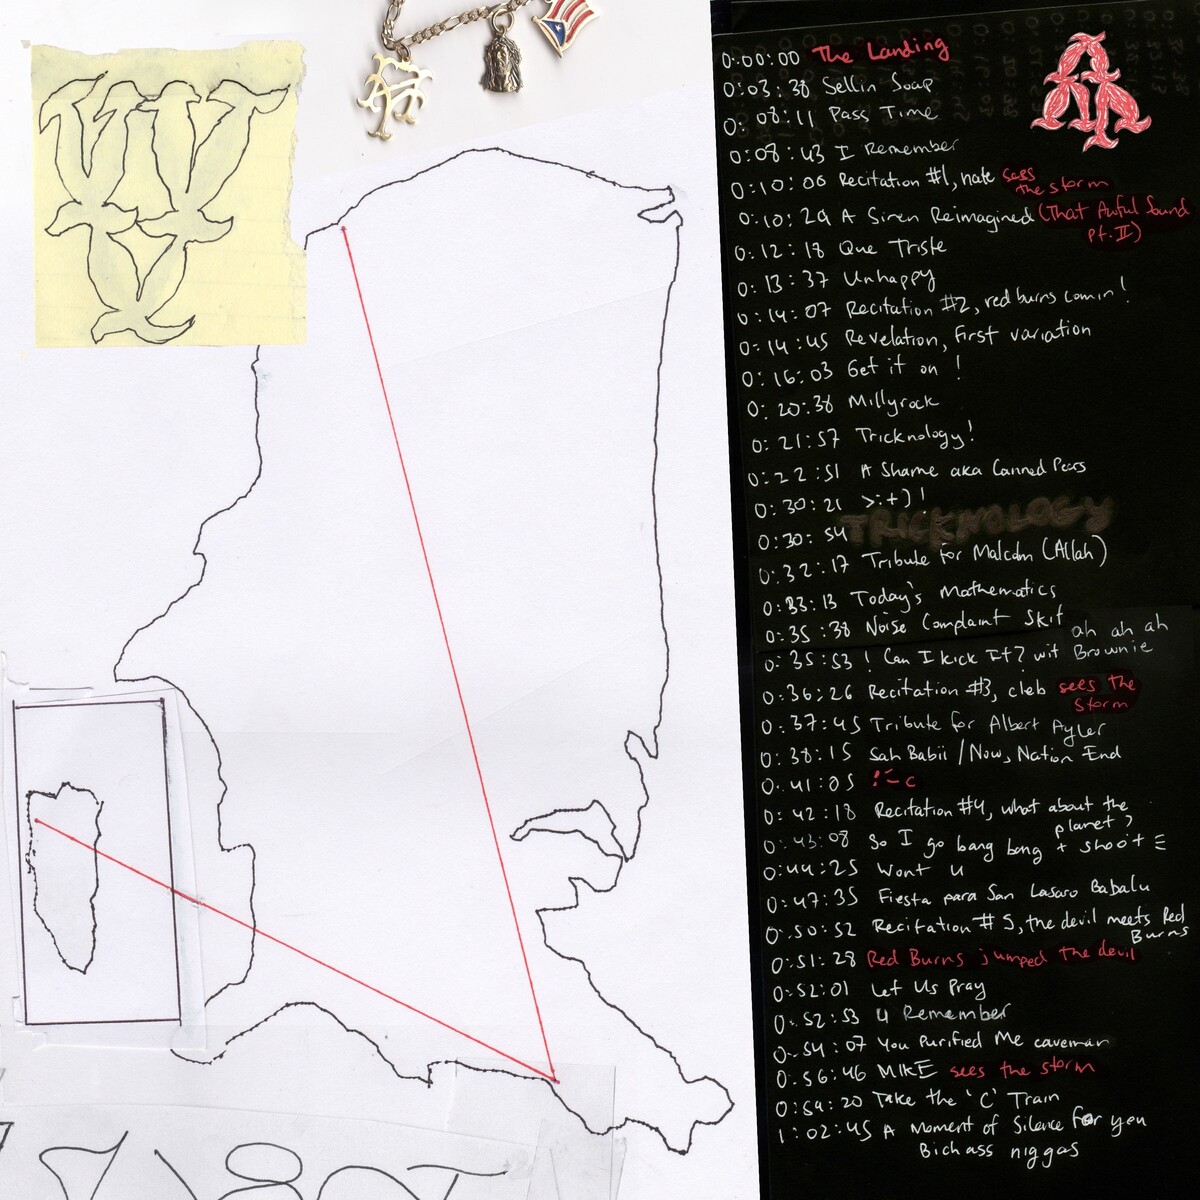 0:00:00 The Landing
0:03:38 Sellin Soap
0:08:11 Pass Time
0:08:43 I Remember
0:10:06 Recitation #1, nate sees
the storm
0:10:29 A Siren Reimagined (That Awful Sound
pt. II)
0:12:18 Que Triste
0:13:37 Unhappy
0:14:07 Recitation #2, red burns comin!
0:14:45 Revelation, First variation
0:16:03 Get it on!
0:20:38 Millyrock
0:21:57 Tricknology!
0:22:51 A Shame aka Canned Pears
0:30:21 >:+)!
0:30:54 TRICKNOLOGY
0:32:17 Tribute for Malcolm (Allah)
0:33:13 Today's Mathematics
0:35:38 Noise Complaint Skit
0:35:53 ! Can I kick It? wit ah ah ah
Brownie
0:36:26 Recitation #3, cleb sees the
storm
0:37:45 Tribute for Albert Ayler
0:38:15 Sah Babii / Now, Nation End
0:41:05 !-c
0:42:18 Recitation #4, what about the
planet?
0:43:08 So I go bang bang + shoot E
0:44:25 Wont u
0:47:35 Fiesta para San Lasaro Babalu
0:50:52 Recitation #5, the devil meets Red
Burns
0:51:28 Red Burns jumped the devil
0:52:01 Let Us Pray
0:52:53 U Remember
0:54:07 You Purified Me caveman
0:56:46 MIKE sees the storm
0:59:20 Take the 'C' Train
1:02:45 A Moment of Silence For you
Bich ass niggas